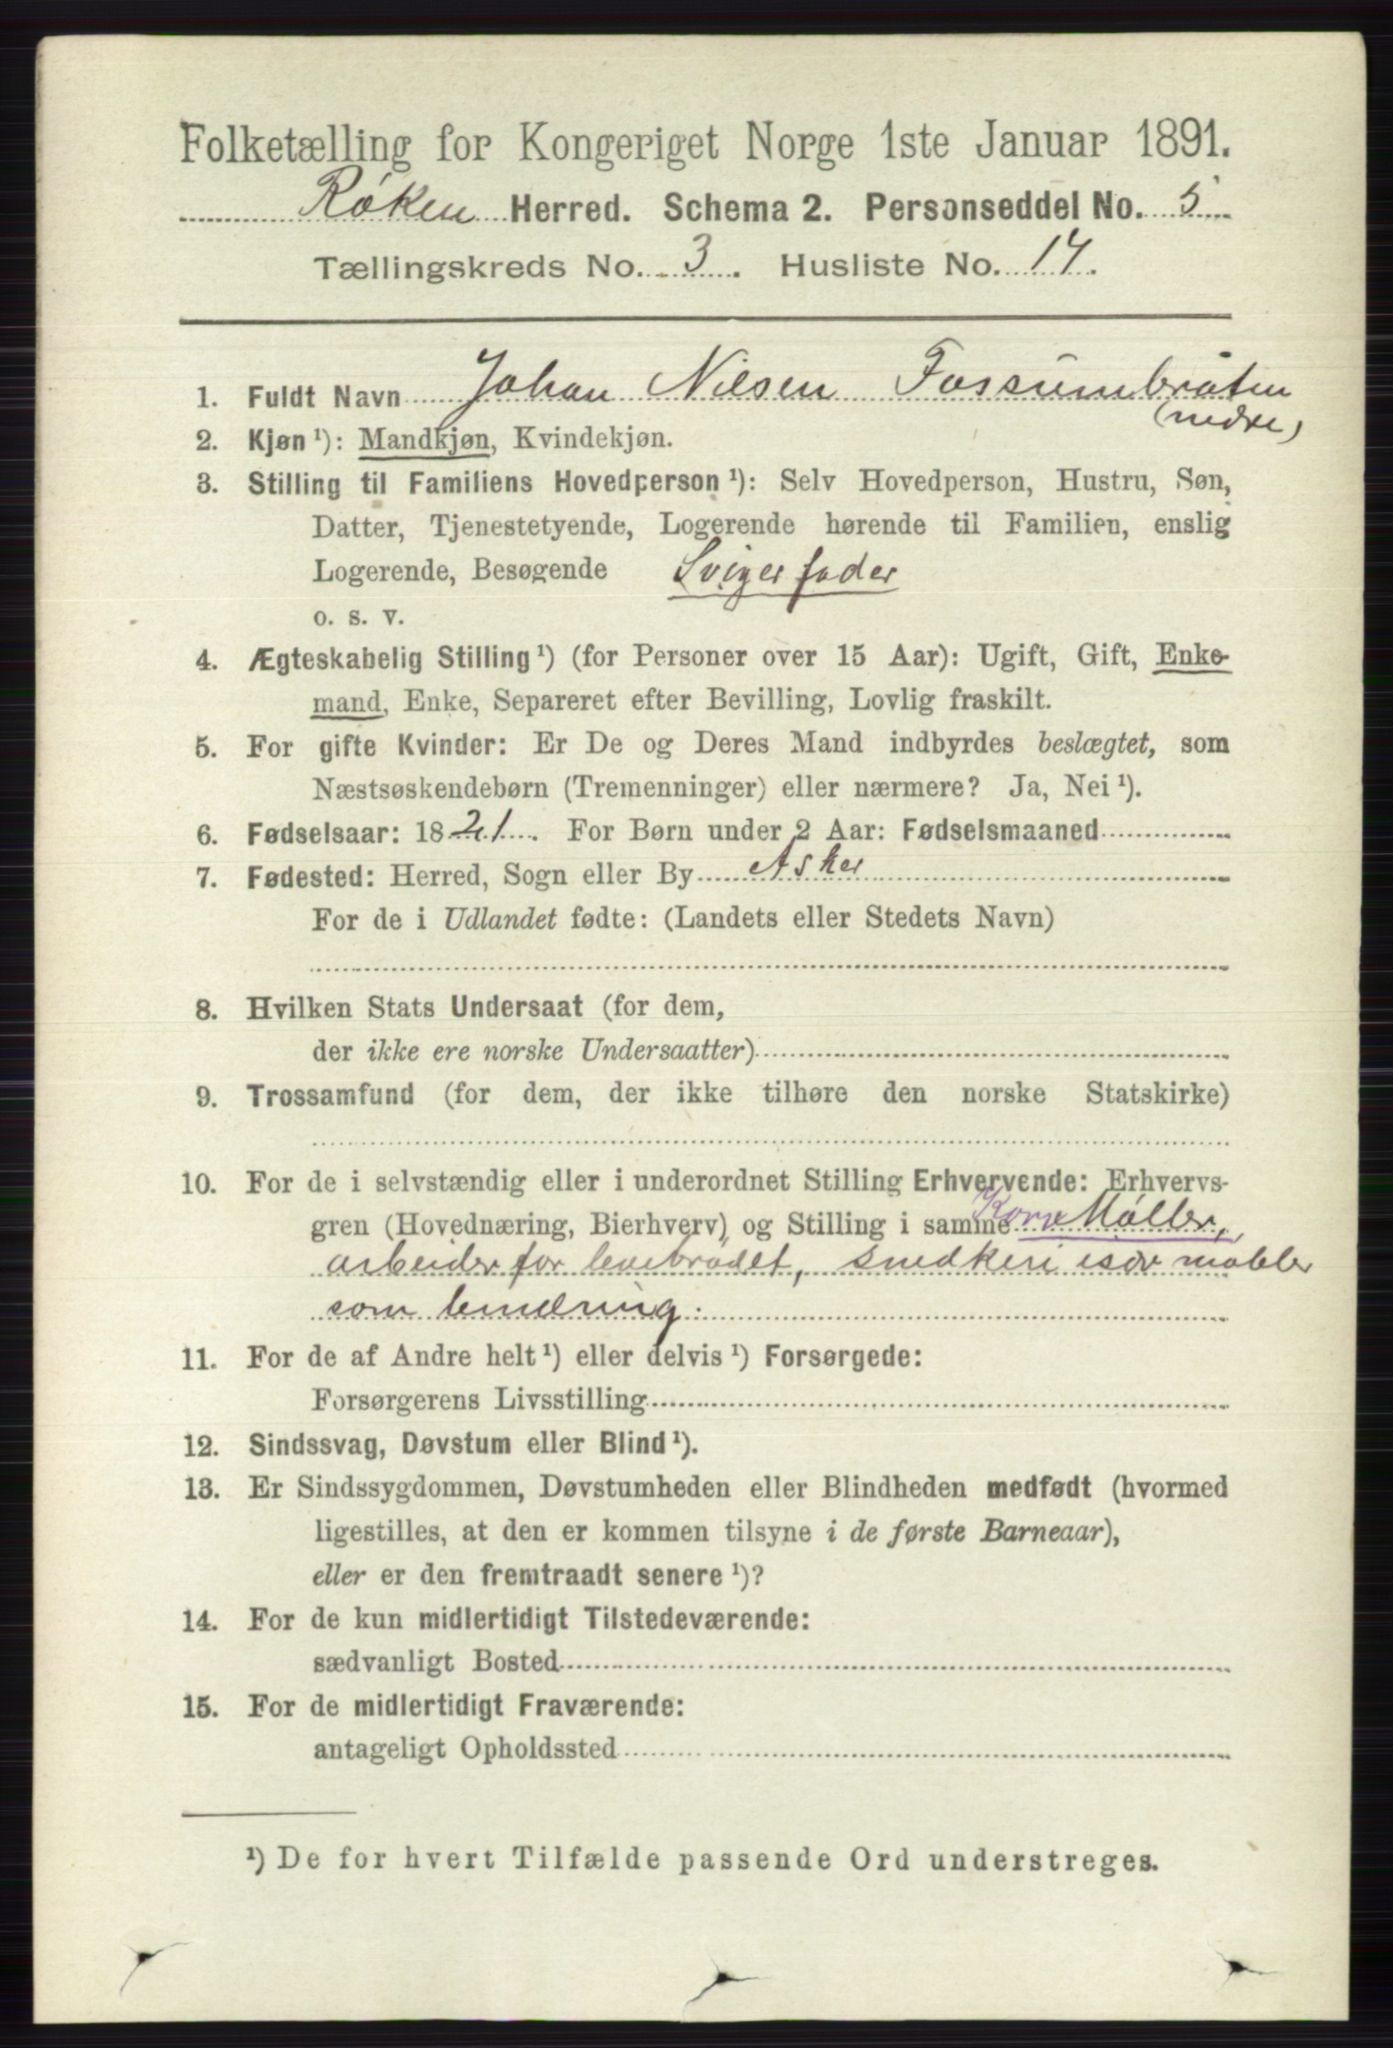 Folketælling for Kongeriget Norge 1ste Januar 1891.
Røken Herred. Schema 2. Personseddel No. 5
Tællingskreds No. 3. Husliste No. 14.
1. Fuldt Navn Johan Nilsen Fossumbråten
(nedre)
2. Kjøn ¹): Mandkjøn, Kvindekjøn.
3. Stilling til Familiens Hovedperson ¹): Selv Hovedperson, Hustru, Søn,
Datter, Tjenestetyende, Logerende hørende til Familien, enslig
Logerende, Besøgende Svigerfader
o. s. v.
4. Ægteskabelig Stilling ¹) (for Personer over 15 Aar): Ugift, Gift, Enke-
mand, Enke, Separeret efter Bevilling, Lovlig fraskilt.
5. For gifte Kvinder: Er De og Deres Mand indbyrdes beslægtet, som
Næstsøskendebørn (Tremenninger) eller nærmere? Ja, Nei ¹).
6. Fødselsaar: 1821. For Børn under 2 Aar: Fødselsmaaned
7. Fødested: Herred, Sogn eller By Asker
For de i Udlandet fødte: (Landets eller Stedets Navn)
8. Hvilken Stats Undersaat (for dem,
der ikke ere norske Undersaatter)
9. Trossamfund (for dem, der ikke tilhøre den norske Statskirke)
10. For de i selvstændig eller i underordnet Stilling Erhvervende: Erhvervs-
gren (Hovednæring, Bierhverv) og Stilling i samme Korn Møller,
arbeider for levebrødet, snedkeri især møbler
som binæring.
11. For de af Andre helt ¹) eller delvis ¹) Forsørgede:
Forsørgerens Livsstilling
12. Sindssvag, Døvstum eller Blind ¹).
13. Er Sindssygdommen, Døvstumheden eller Blindheden medfødt (hvormed
ligestilles, at den er kommen tilsyne i de første Barneaar),
eller er den fremtraadt senere ¹)?
14. For de kun midlertidigt Tilstedeværende:
sædvanligt Bosted
15. For de midlertidigt Fraværende:
antageligt Opholdssted
¹) De for hvert Tilfælde passende Ord understreges.